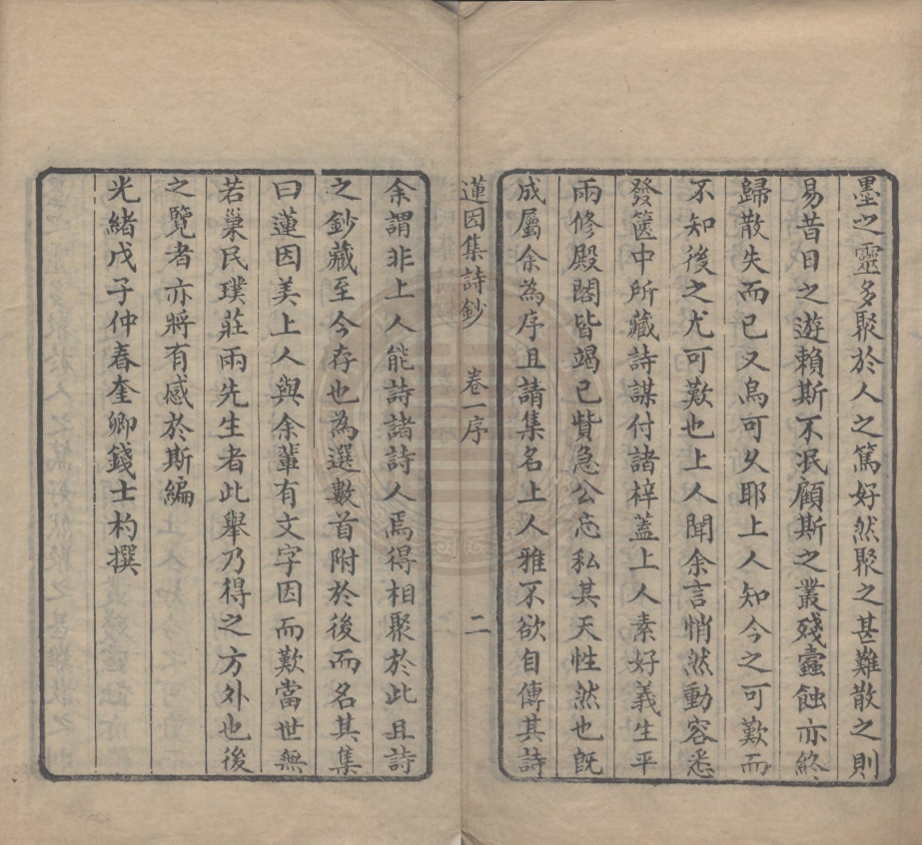 墨之靈多聚於人之篤好然聚之甚難散之則
易昔日之遊賴斯不泯顧斯之叢殘蠹蝕亦終
歸散失而已又烏可久耶上人知今之可歎而
不知後之尤可歎也上人聞余言悄然動容悉
發篋中所藏詩謀付諸梓蓋上人素好義生平
兩修殿閣皆竭己貲急公忘私其天性然也既
成屬余為序且請集名上人雅不欲自傳其詩
蓮因集詩鈔 卷一序 二
余謂非上人能詩諸詩人焉得相聚於此且詩
之鈔藏至今存也為選數首附於後而名其集
曰蓮因美上人與余輩有文字因而歎當世無
若巢民璞莊兩先生者此舉乃得之方外也後
之覽者亦將有感於斯編
光緒戊子仲春奎卿錢士杓撰